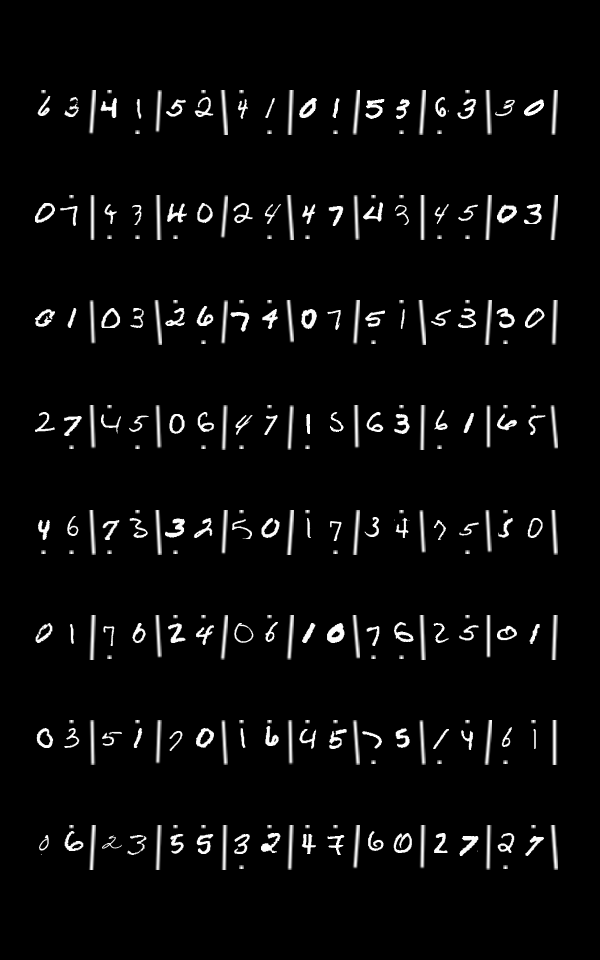 6 3 | 4 1 | 5 2 | 4 1 | 0 1 | 5 3 | 6 3 | 3 0 |
0 7 | 4 3 | 4 0 | 2 4 | 4 7 | 4 3 | 4 5 | 0 3 |
0 1 | 0 3 | 2 6 | 7 4 | 0 7 | 5 1 | 5 3 | 3 0 |
2 7 | 4 5 | 0 6 | 4 7 | 1 5 | 6 3 | 6 1 | 6 5 |
4 6 | 7 3 | 3 2 | 5 0 | 1 7 | 3 4 | 7 5 | 5 0 |
0 1 | 7 6 | 2 4 | 0 6 | 1 0 | 7 6 | 2 5 | 0 1 |
0 3 | 5 1 | 7 0 | 1 6 | 4 5 | 7 5 | 1 4 | 6 1 |
0 6 | 2 3 | 5 5 | 3 2 | 4 7 | 6 0 | 2 7 | 2 7 |